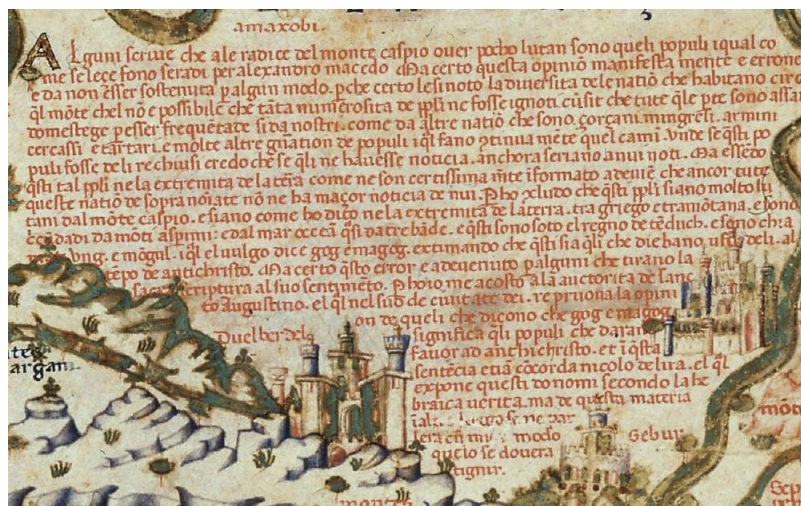 amaxobi.
Alguni scrive che ale radice del monte caspio over pocho lutan sono queli populi i qual co
me se leçe fono seradi per alexandro macedo Ma certo questa opiniõ manifesta mente e errone
e da non esser sostenuta p algun modo. pche certo lesi noto la diversita de le natiõ che habitano circ
ql mõte chel nõ e possibile che tãta numerosita de ppli ne fosse ignoti cũsit che tute qle pte sono assai
domestege p esser frequẽtade si da nostri. come da altre natiõ che sono. çorçani mingreli. armini
cercassi e tartari. e molte altre gñation de populi i ql fano ↄtinua mẽte quel cami. Unde se qsti po
puli fosse de li rechiusi credo che se qli ne havesse noticia. anchora seriano a nui noti. Ma essẽdo
qsti tal ppli ne la extremita de la tera come ne son certissima mẽte ĩformato adeviẽ che ancor tute
queste natiõ de sopra noĩate nõ ne ha maçor noticia de nui. Pho ↄcludo che qsti ppli siano molto lu
tani dal mõte caspio. e siano come ho dito ne la extremita de la terra. tra griego e tramõtana. e sono
dadi da mõti aspimi e dal mar ocean qsi da tre bãde. e qsti sono soto el regno de tẽduch. e sono chia
ung. e mõgul. i ql el vulgo dice gog e magog. extimando che qsti sia qli che die bano
tẽpo de antichristo. Ma certo qsto error e advenuto p alguni che tirano la
sacra scriptura al suo sentimẽto. Pho io me acosto a la auctorita de sanc
to Augustino. el ql nel suo de civitate dei. re pruova la opini
on de queli che dicono che gog e magog
Duelber dela
significa qli populi che daran
favor ad antichristo. et i qsta
sentẽcia etiã cõcorda nicolo de lira. el ql
expone questi do nomi secondo la he
braica verita. ma de questa materia
modo
que io se dovera
tignir.
Gebur
argan
mõt
montes
Sep